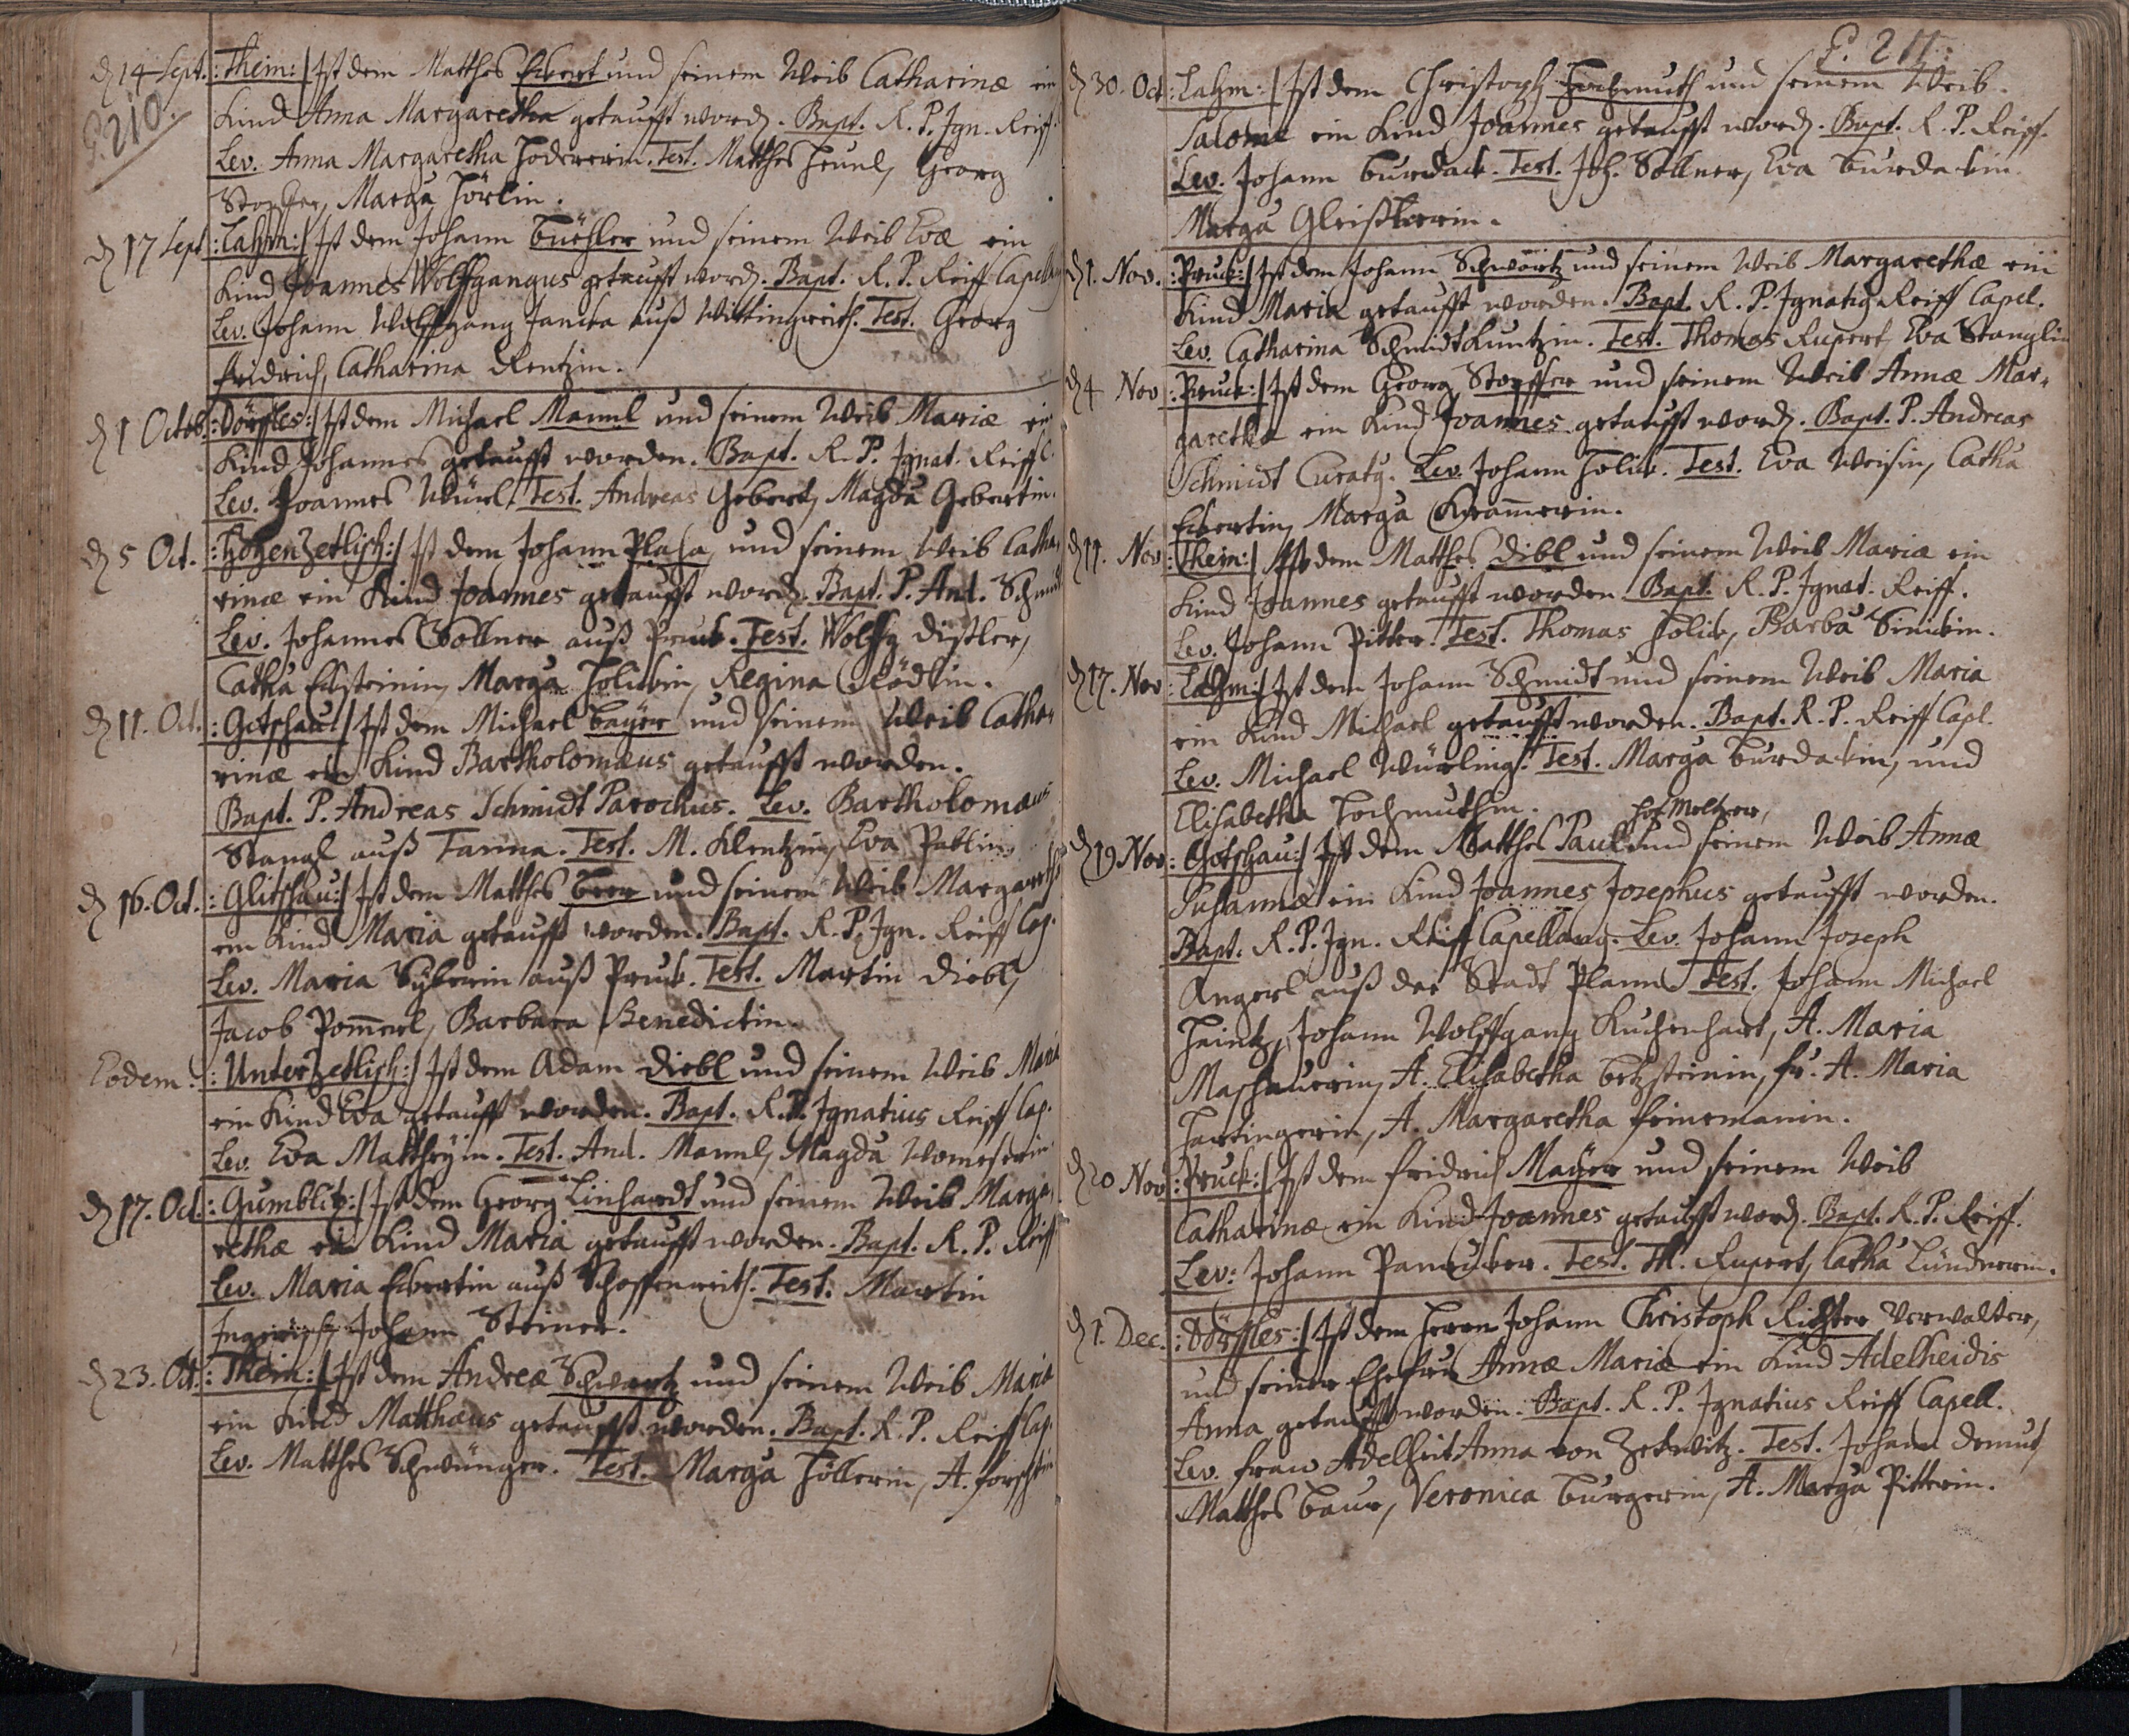 P. 210.
d 14 Sept. :Theim:/ Ist dem Matthes Ekert und seinem Weib Catharinæ ein
Kind Anna Margaretha getaufft word. Bapt. R. P. Ign. Reiff.
Lev. Anna Margaretha Test. Matthes Heunl, Georg
Marga Hörlin.
d 17 Sept :Lahm:/ Ist dem Johann Büehler und seinem Weib Evæ ein
Kind Joannes Wolffgangus getaufft word. Bapt. R. P. Reiff Capell
Lev. Johann Wolffgang Jancka auß Wittingreith. Test. Georg
fridrich, Catharina Rentzin.
d 1 Octob. :Dörffles:/ Ist dem Michael Mannl und seinem Weib Mariæ ein
Kind Johannes getaufft worden. Bapt. R. P. Ignat. Reiff C.
Lev. Joannes Würl. Test. Andreas Gebert, Magda Gebertin.
d 5 Oct. :Hohenzetlisch:/ Ist dem Johann Plaha und seinem Weib Catha,
rinæ ein Kind Joannes getaufft word. Bapt. P. And. Schmidt
Lev. Johannes Söllner auß Pruk. Test. Wolffg Distler,
Catha Eksteinin, Marga Holikin, Regina Rödlin.
d 11. Oct. :Gotschau:/ Ist dem Michael Bayer und seinem Weib Catha,
rinæ ein Kind Bartholomæus getaufft worden.
Bapt. P. Andreas Schmidt Parochus. Lev. Bartholomæus
Stangl auß Tarina. Test. M. Klentzin, Eva Pablin.
d 16. Oct. :Glitschau:/ Ist dem Matthes Beer und seinem Weib Margareth
ein Kind Maria getaufft worden. Bapt. R. P. Ign. Reiff Cap.
Lev. Maria Syberin auß Pruk. Test. Martin Diebl,
Jacob Pommerl, Barbara Benedictin.
Eodem. :Unterzetlisch:/ Ist dem Adam Diebl und seinem Weib Mariæ
ein Kind Eva getaufft worden. Bapt. R. P. Ignatius Reiff Cap.
Lev. Eva Mattheyin. Test. And. Mannl, Magda
d 17. Oct. :Gumblitz:/ Ist dem Georg Linhardt und seinem Weib Marga,
rethæ ein Kind Maria getaufft worden. Bapt. R. P. Reiff
Lev. Maria Ekertin auß Schossenreith. Test. Martin
Ingerisch, Johann Steiner.
d 23. Oct. :Theim:/ Ist dem Andreæ Schwartz und seinem Weib Mariæ
ein Kind Matthæus getaufft worden. Bapt. R. P. Reiff Cap.
Lev. Matthes Schwünger. Test. Marga Höllerin, A. forsterin
P. 211.
d 30. Oct :Lahm:/ Ist dem Christoph Hochmuth und seinem Weib
Salome ein Kind Joannes getaufft word. Bapt. R. P. Reiff.
Lev. Johann Burdack. Test. Joh. Söllner, Eva Burdackin
Marga Gleißnerin.
d 1. Nov. :Pruck:/ Ist dem Johann Schwartz und seinem Weib Margarethæ ein
Kind Maria getaufft worden. Bapt. R. P. Ignatig Reiff Capel.
Lev. Catharina Schmidtkuntzin. Test. Thomas Rupert, Eva Stanglin
d 4 Nov :Pruck:/ Ist dem Georg Stopffer und seinem Weib Annæ Mar,
garethæ ein Kind Joannes getaufft word. Bapt. P. Andreas
Schmidt Curatg. Lev. Johann Holik. Test. Eva Weisin, Catha
Ekertin, Marga Krammerin.
d 11. Nov :Theim:/ Ist dem Matthes Dibl und seinem Weib Mariæ ein
Kind Joannes getaufft worden. Bapt. R. P. Ignat. Reiff.
Lev. Johann Pitter. Test. Thomas Holik, Barba Sinickin.
d 17. Nov :Lahm:/ Ist dem Johann Schmidt und seinem Weib Maria
ein Kind Michael getaufft worden. Bapt. R. P. Reiff Capl.
Lev. Michael Würling. Test. Marga Burdackin, und
Elisabetha Hochmuthin.
Hof Meltzer,
d 19 Nov :Gotschau:/ Ist dem Matthes Paul und seinem Weib Annæ
Susannæ ein Kind Joannes Josephus getaufft worden.
Bapt. R. P. Ign. Reiff Capellang. Lev. Johann Joseph
Angerl auß der Stadt Plann. Test. Johann Michael
Heintz, Johann Wolffgang Kuchenhart, A. Maria
Maschauerin, A. Elisabetha Betzsteinin, fr. A. Maria
Hartingerin, A. Margaretha feinemanin.
d 20 Nov :Pruck:/ Ist dem fridrich Mayer und seinem Weib
Catharinæ ein Kind Joannes getaufft word. Bapt. R. P. Reiff.
Lev: Johann Panzucker. Test. Th. Rupert, Catha Lündnerin.
d 1. Dec. :Dörffles:/ Ist dem Herrn Johann Christoph Richter Verwalter,
und seiner Ehefrau Annæ Mariæ ein Kind Adelheidis
Anna getaufft worden. Bapt. R. P. Ignatius Reiff Capell.
Lev. fraw Adelheit Anna von Zetwitz. Test. Johann Demut,
Matthes Baur, Veronica Burgerin, A. Marga Pitterin.